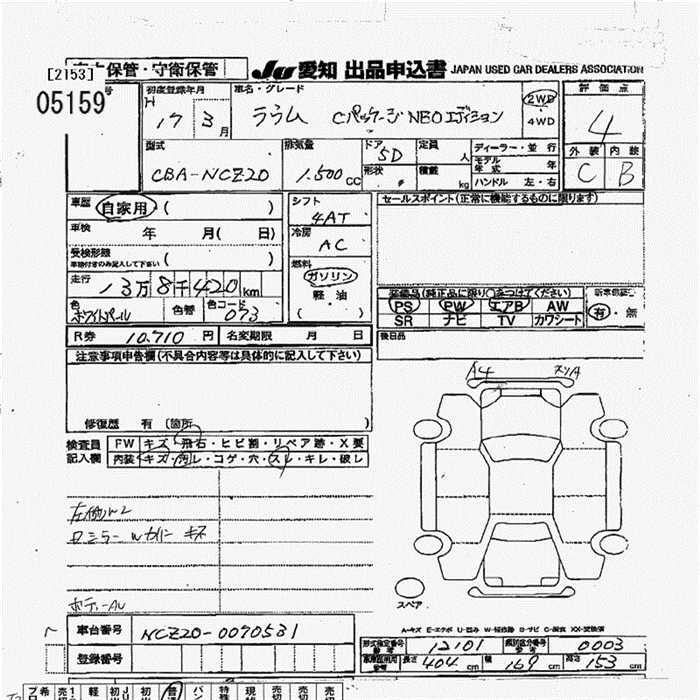 [2153] 保管・守衛保管 JU 愛知 出品申込書 JAPAN USED CAR DEALERS ASSOCIATION
05159 号
初度登録年月 車名・グレード 評価点
H 17 3月 ラウム Cパッケージ NEOエディション 2WD 4WD 4
型式 排気量 ドア 定員 人 ディーラー・並行 外装 内装
CBA-NCZ20 1.500cc 5D 形状 積載 kg モデル年式 年 C B
ハンドル 左・右
車歴 自家用 ( ) シフト セールスポイント(正常に機能するものに限ります)
4AT
車検 年 月( 日) 冷房
AC
受検形態
車検付きのみ記入して下さい ( ) 燃料
ガソリン
走行 13万8千420km 軽・油
( )
装備品(純正品に限り○をつけてください)
PS PW エアB AW 有・無
SR ナビ TV カワシート
色 ホワイトパール 色替 色コード 073
R券 10.710円 名変期限 月 日 後日品
注意事項申告欄(不具合内容等は具体的に記入して下さい)
A4
修復歴 有 (箇所 )
検査員 FW キズ・飛石・ヒビ割・リペア跡・X要
記入欄 内装 キズ・汚レ・コゲ・穴・スレ・キレ・破レ
ロミラー Wカバー キズ
スペア
車台番号 NCZ20-0070531
登録番号
12101 0003
長さ 404cm 幅 169cm 高さ 153cm